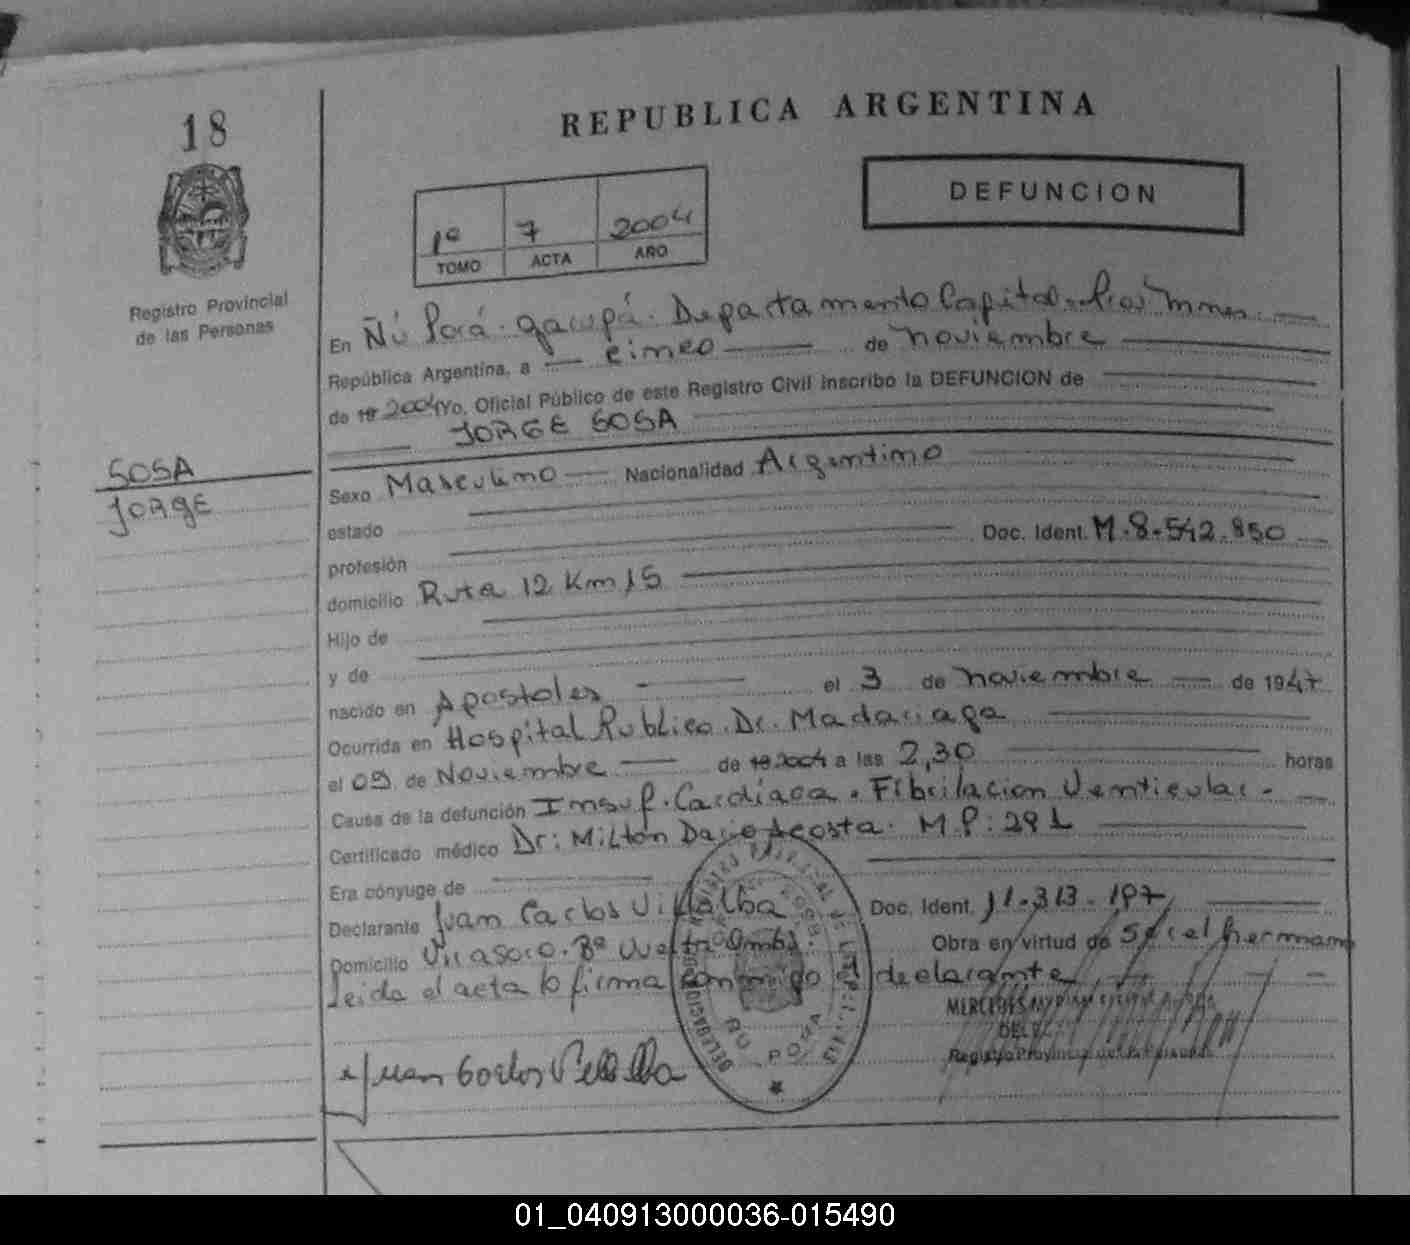 18
REPUBLICA ARGENTINA
DEFUNCION
1º 7 2004
TOMO ACTA AÑO
Registro Provincial
de las Personas
En Ñú Porá. Garupá. Departamento Capital.
República Argentina, a cinco de noviembre
de 19 2004 Yo, Oficial Público de este Registro Civil inscribo la DEFUNCION de
JORGE SOSA
SOSA
JORGE
Sexo Masculino Nacionalidad Argentino
estado
profesión Doc. Ident. M.8.542.850
domicilio Ruta 12 Km 15
Hijo de
y de
nacido en Apostoles el 3 de noviembre de 1947
Ocurrida en Hospital Publico. Dr. Madariaga
el 05 de Noviembre de 19 2004 a las 2,30 horas
Causa de la defunción Insuf. Cardiaca. Fibrilacion Ventricular.
Certificado médico Dr: Milton Dario Acosta. M.P: 291
Era cónyuge de
Declarante Juan Carlos Villalba Doc. Ident. 11.313.197
Domicilio Virasoro. Bº Obra en virtud de ser el hermano
leida el acta lo firma conmigo el declarante
MERCEDES
Registro Provincial de las Personas
Juan Carlos Villalba
ÑU PORA
01_040913000036-015490